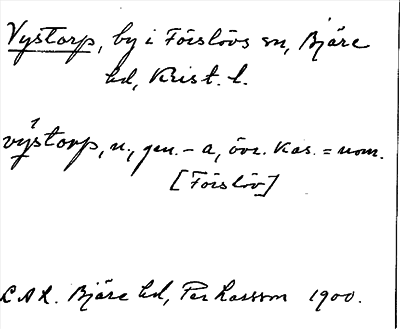 Vystorp, by i Förslövs sn, Bjäre
hd, Krist. l.
výstorp, n., gen. - a, övr. kas. = nom.
[Förslöv]
L A L. Bjäre hd, Per Larsson 1900.